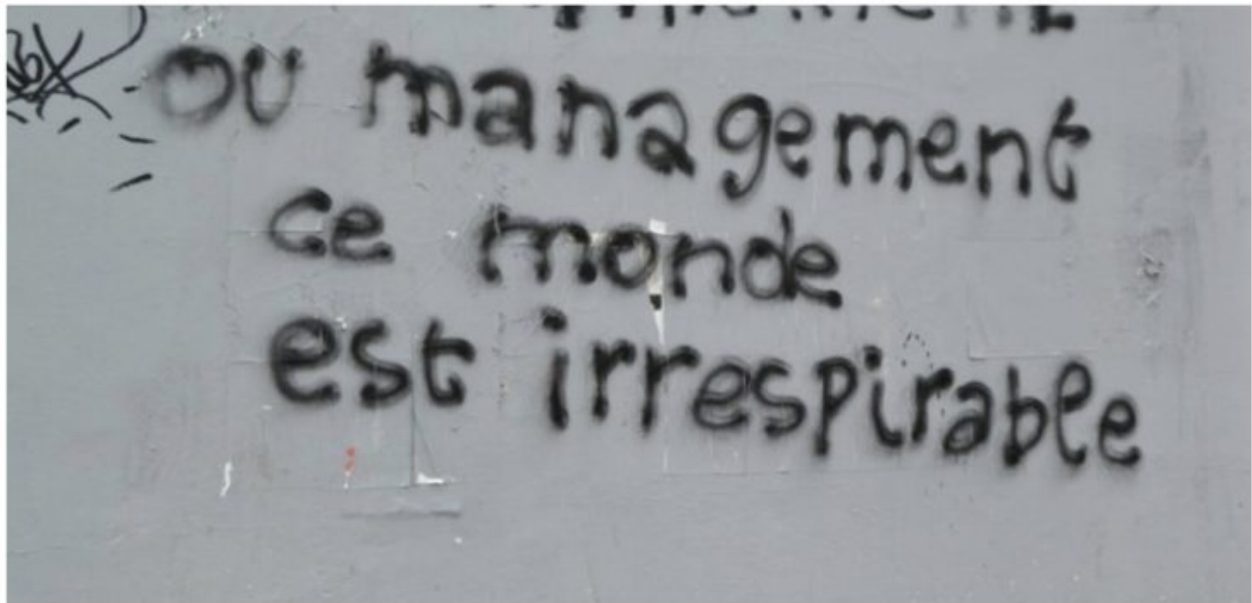 ou management
ce monde
est irrespirable